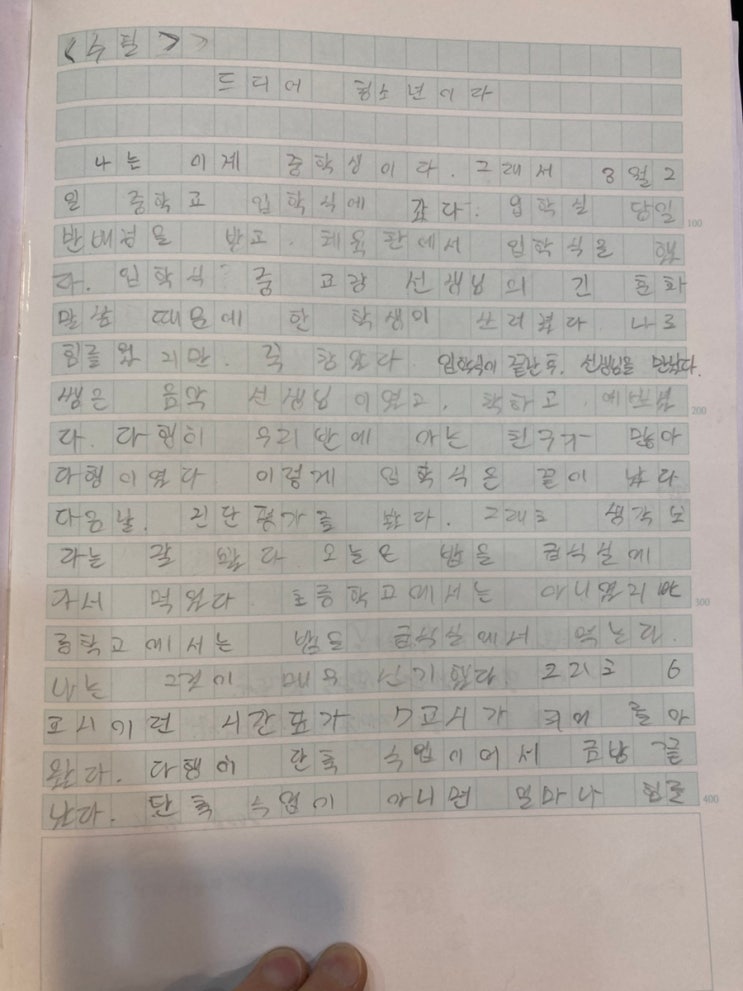 <수필>
드디어 청소년이다
나는 이제 중학생이다. 그래서 3월 2
일 중학교 입학식에 갔다. 입학실 당일
반배정을 받고. 체육관에서 입학식을 했
다. 입학식 중 교장 선생님의 긴 훈화
말씀 때문에 한 학생이 쓰러졌다. 나도
힘들었지만. 꾹 참았다. 입학식이 끝난 후. 선생님을 만났다.
쌤은 음악 선생님이였고, 착하고, 예쁘셨
다. 다행히 우리반에 아는 친구가 많아
다행이였다 이렇게 입학식은 끝이 났다
다음날. 진단평가를 봤다. 그래도 생각보
다는 잘 봤다 오늘은 밥을 급식실에
가서 먹었다 초등학교에서는 아니였지만
중학교에서는 밥을 급식실에서 먹는다.
나는 그것이 매우 신기했다 그리고 6
교시이던 시간표가 7교시가 되어 늘어
났다. 다행히 단축 수업이어서 금방 끝
났다. 단축 수업이 아니면 얼마나 힘들
100
200
300
400